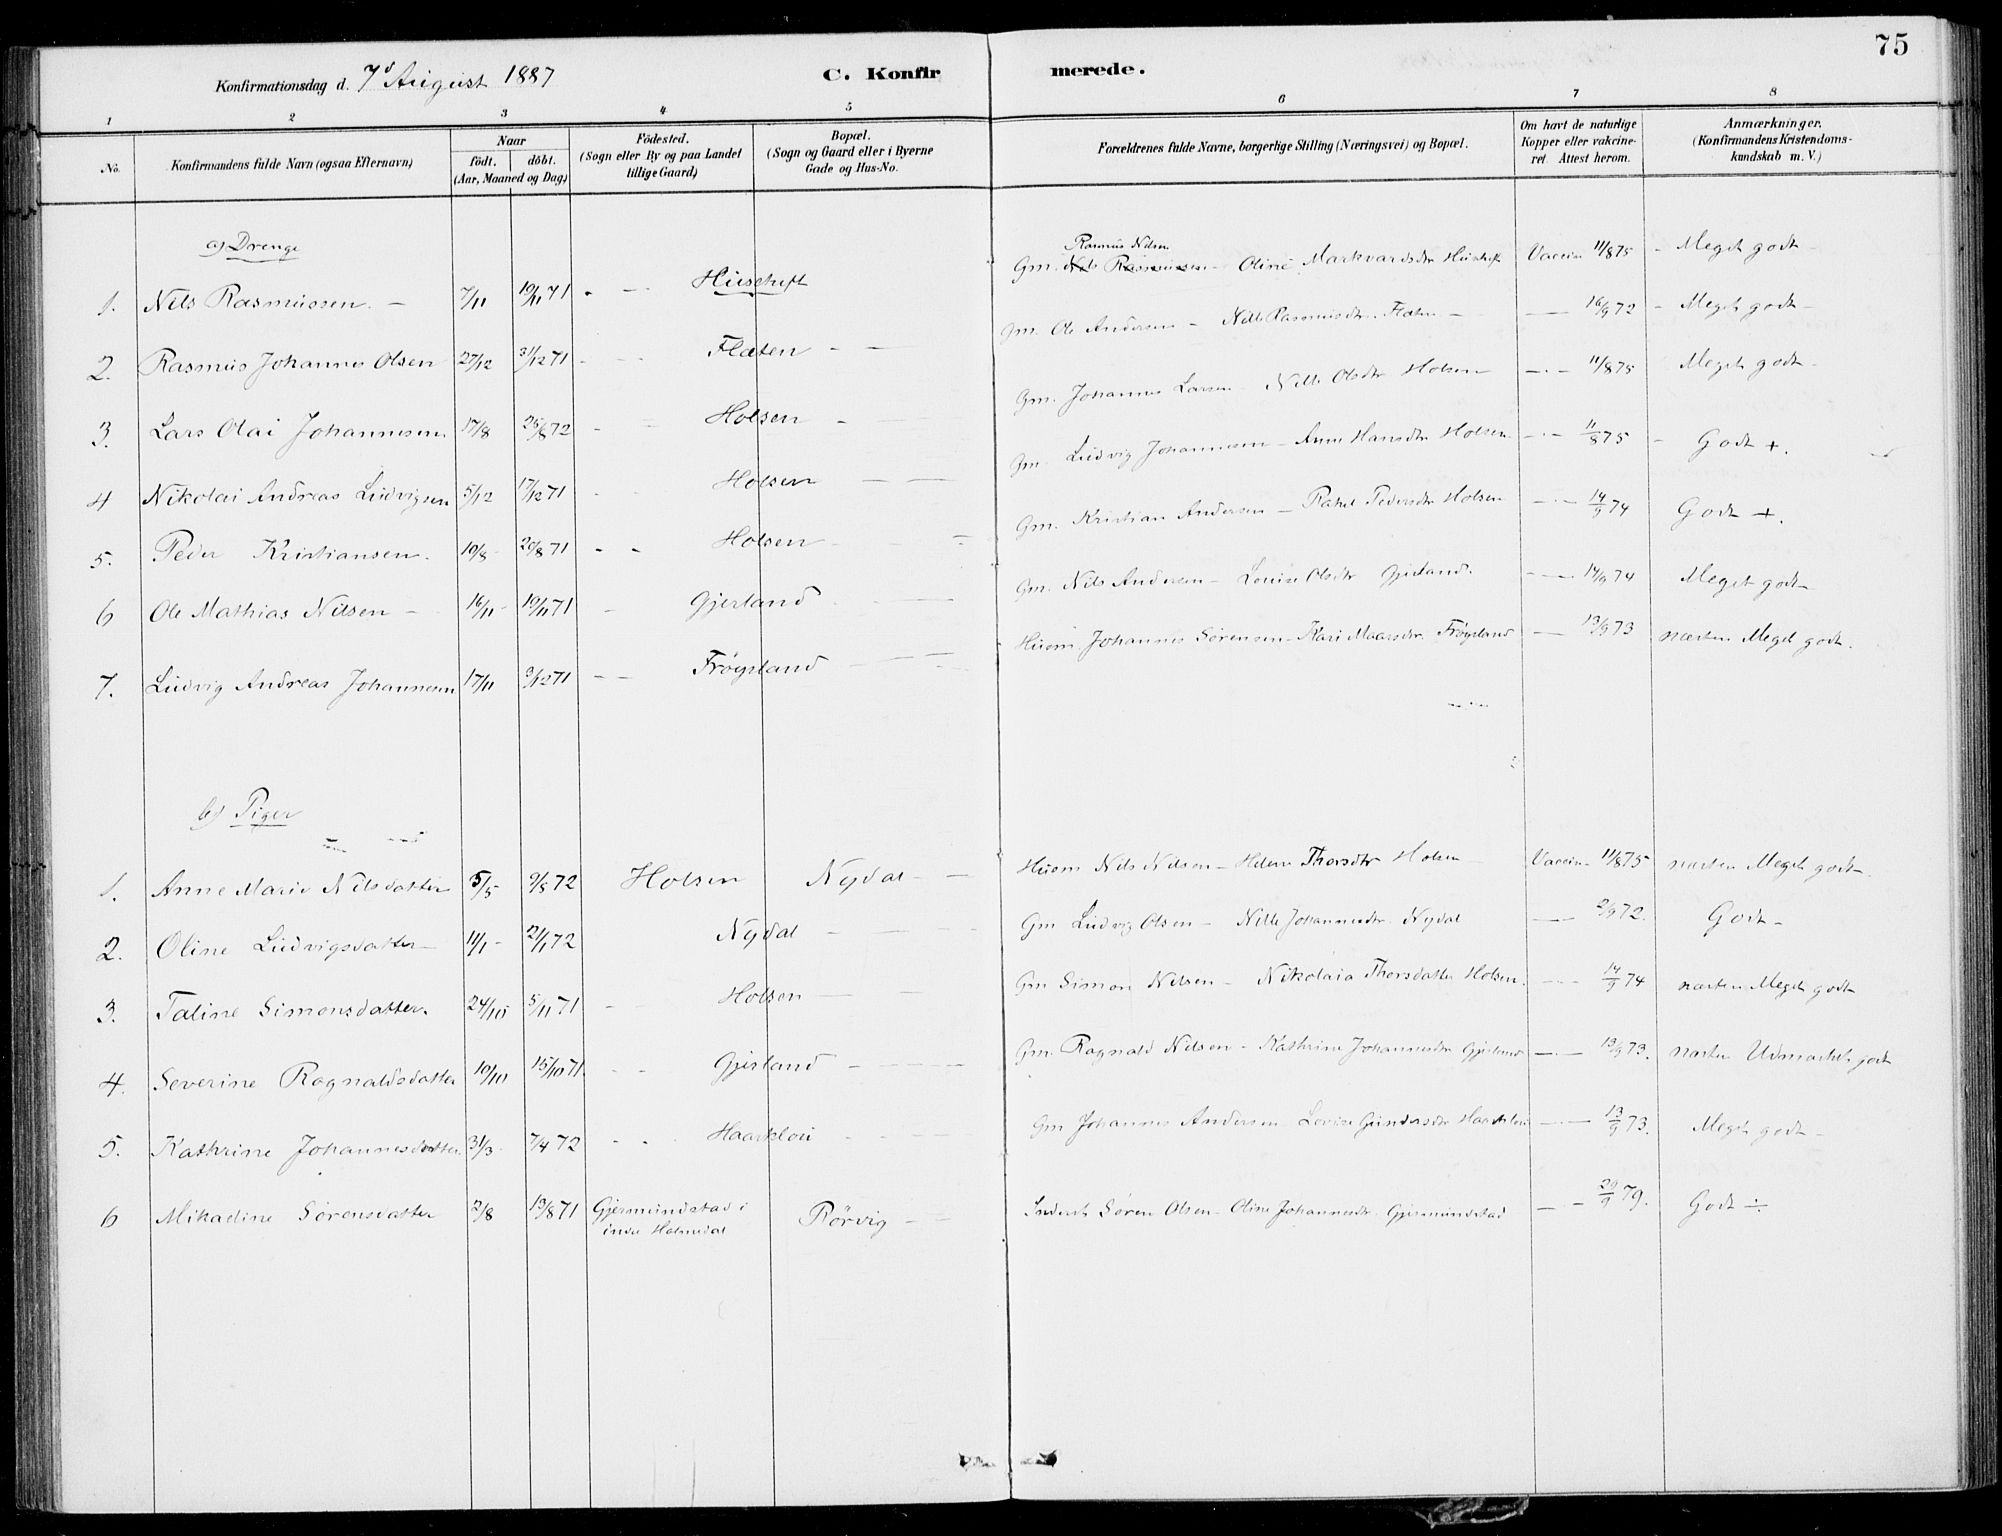 75
Konfirmationsdag d. 7d August 1887 C. Konfirmerede.
1 2 3 4 5 6 7 8
No. Konfirmandens fulde Navn (ogsaa Efternavn) Naar födt. döbt. (Aar, Maaned og Dag.) Födested. (Sogn eller By og paa Landet tillige Gaard) Bopæl. (Sogn og Gaard eller i Byerne Gade og Hus-No. Forældrenes fulde Navne, borgerlige Stilling (Næringsvei) og Bopæl. Om havt de naturlige Kopper eller vakcineret. Attest herom. Anmærkninger. (Konfirmandens Kristendomskundskab m. V.)
a) Drenge
1. Nils Rasmussen. – 7/11 19/11 71 - – Huschift Gm. Nils Rasmussen Rasmus Nilsen – Oline Markvardsdtr Huschift Vaccin 11/8 75 – Meget godt –
2. Rasmus Johannes Olsen 27/12 31/12 71 - – Flæten – – Gm. Ole Andersen – Nille Rasmusdtr. Flæten – — 16/9 72 – Meget godt –
3. Lars Olai Johannesen 17/8 25/8 72 – = Holsen – Gm. Johannes Larsen – Nille Olsdtr Holsen – –·– 11/8 75 Meget godt –
4 Nikolai Andreas Ludvigsen 5/12 17/12 71 Holsen – – Gm. Ludvig Johannesen – Anne Hansdtr Holsen –·– 11/8 75 – Godt +.
5. Peder Kristiansen. 10/8 20/8 71 - - Holsen – Gm. Kristian Andersen – Rakel Pedersdtr Holsen –·– 14/9 74 Godt +.
6 Ole Mathias Nilsen – 16/11 19/11 71 – Gjerland – Gm. Nils Andersen – Lovise Olsdtr Gjerland. – — 14/9 74 Meget godt
7. Ludvig Andreas Johannesen 17/11 3/12 71 – – Frøysland – – Husm. Johannes Sørensen – Kari Maarsdtr. Frøysland — 13/9 73 næsten Meget godt.
b) Piger
1. Anne Marie Nilsdatter 5/5 9/5 72 Holsen Nydal – – Husm Nils Nilsen – Helene Thorsdtr Holsen Vaccin – 11/8 75 næsten Meget godt.
2. Oline Ludvigsdatter – 11/1 – 21/1 72 Nydal – – Gm Ludvig Olsen – Nille Johannesdtr. Nydal — 2/9 72. Godt –
3. Taline Simonsdatter. 24/10 5/11 71 – Holsen – Gm Simon Nilsen – Nikolaia Thorsdatter Holsen. –·– 14/9 74 næsten Meget godt
4. Severine Ragnaldsdatter 10/10 15/10 71. - - Gjerland – – Gm. Ragnald Nilsen – Kathrine Johannesdtr Gjerland –·– 13/9 73. næsten Udmærket godt
5. Kathrine Johannesdatter. 31/3 7/4 72 - - Haarklou – – Gm Johannes Andersen Lovise Gundersdtr Haarklou –·– 13/9 73. Meget godt –
6 Mikadine Sørensdatter 2/8 13/8 71 Gjermundstad i indre Holmedal Rørvig – – Inderst Søren Olsen – Oline Johannesdtr. Gjermundstad – – 29/9 79. Godt ÷